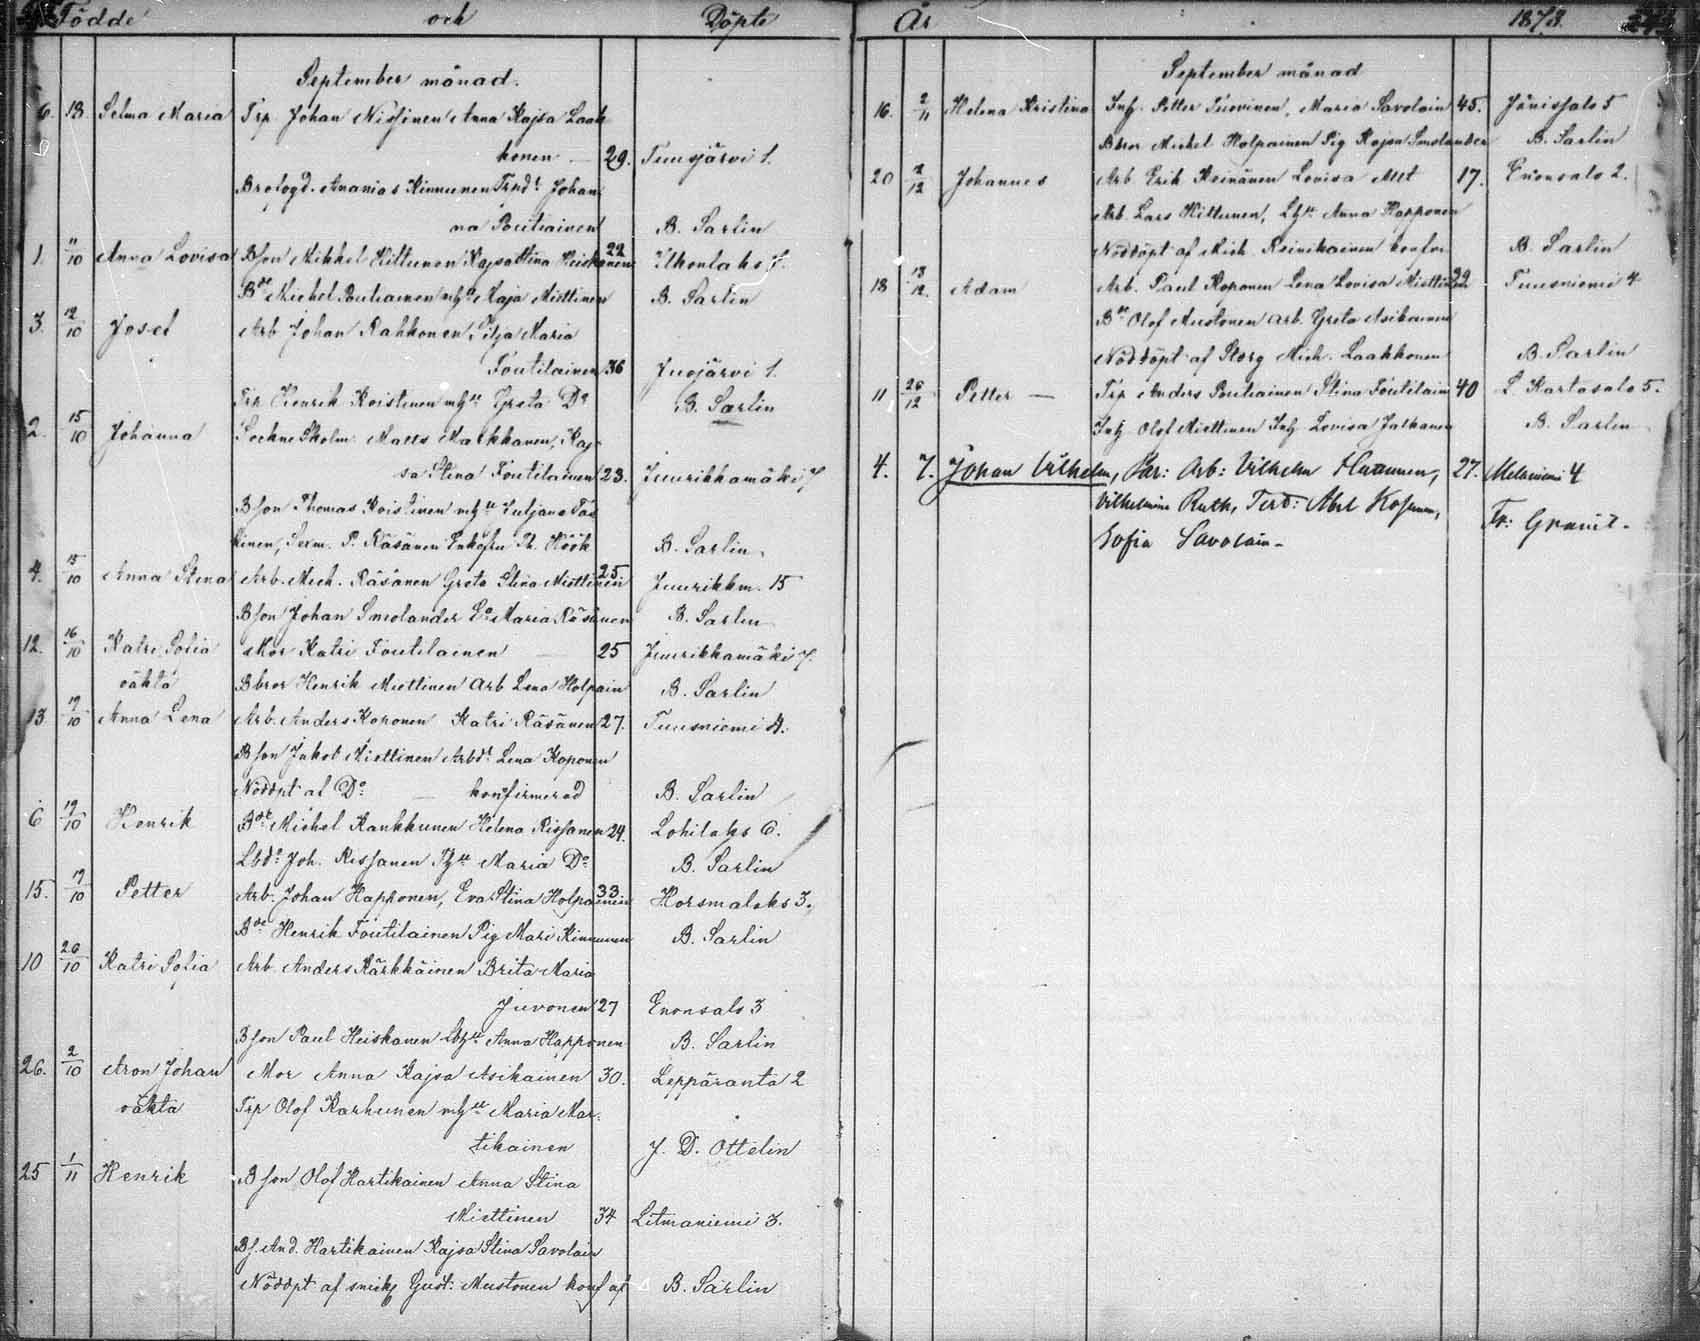 Födde och Döpte
September månad.
6. 18. Selma Maria Trp Johan Nissinen Anna Kajsa Laak
konen — 29. Tuusjärvi 1.
Ananias Kinnunen Johan
na Poutiainen B. Sarlin
1. 11/10 Anna Lovisa Bson Mikkel Hiltunen Kajsa Stina Heiskanen 22
Bde Michel Poutiainen Maja Miettinen B. Sarlin
3. 12/10 Josef Arb Johan Rahkonen Silja Maria
Toutilainen 36 Juojärvi 1.
Trp Henrik Koistinen Greta Do B. Sarlin
2. 15/10 Johanna Sockne Skolm. Matts Markkanen, Kaj-
sa Stina Toutilainen 23. Juurikkamäki 7
Bson Thomas Koistinen Juljana Tas
kinen, Sexm. P. Räsänen Enkefru Höök B. Sarlin
4. 15/10 Anna Stina Arb. Mich. Räsänen Greta Stina Miettinen 25 Juurikkm. 15
Bson Johan Smolander Maria Räsänen B. Sarlin
12. 16/10 Katri Sofia Mor Katri Toutilainen — 25 Juurikkamäki 7.
oäkta Bbror Henrik Miettinen Arb Lena Holpain B. Sarlin
13. 19/10 Anna Lena Arb. Anders Koponen Katri Räsänen 27. Tuusniemi 4.
Bson Jakob Miettinen Arbdr Lena Koponen
Nöddpt af Do — konfirmerad B. Sarlin
6 19/10 Henrik Bde Michel Kankkunen Helena Rissanen 24. Lohilaks 6.
Joh. Rissanen Maria Do B. Sarlin
15. 19/10 Petter Arb. Johan Happonen, Eva Stina Holpainen 33 Horsmalaks 3.
Bde Henrik Toutilainen Pig Mari Kinnunen B. Sarlin
10 26/10 Katri Sofia Arb. Anders Kärkkäinen Brita Maria
Juvonen 27 Enonsalo 3
Bson Paul Heiskanen Anna Happonen B. Sarlin
26. 2/10 Aron Johan Mor Anna Kajsa Asikainen 30. Leppäranta 2
oäkta Trp Olof Karhunen Maria Mar-
tikainen J. D. Ottelin
25 1/11 Henrik Bson Olof Hartikainen Anna Stina
Miettinen 34 Litmaniemi 3.
Bs. And. Hartikainen Kajsa Stina Savolain
Nöddpt af Gust: Mustonen konf af B. Sarlin
År 1873.
September månad
16. 2/11 Helena Kristina Inh. Petter Tuovinen, Maria Savolain 45. Jänissalo 5
Bbror Michel Holpainen Pig Kajsa Smolander B. Sarlin
20 2/12 Johannes Arb. Erik Keinänen Lovisa 17. Enonsalo 2.
Arb. Lars Hiltunen, Anna Happonen
Nöddöpt af Mich. Reinikainen konfir B. Sarlin
18 13/12. Adam Arb. Paul Koponen Lena Lovisa Miettin 22 Tuusniemi 4
Bde Olof Mustonen Arb. Greta Asikainen
Nöddöpt af Mich. Laakkonen B. Sarlin
11 26/12 Petter — Trp Anders Poutiainen Stina Toutilain 40 L. Kartasalo 5.
Inh. Olof Miettinen Inh. Lovisa B. Sarlin
4. 7. Johan Vilhelm, Arb: Vilhelm 27. Melaniemi 4
Vilhelmina Ruth, Abel Kosunen, Fr: Granit.
Sofia Savolain-